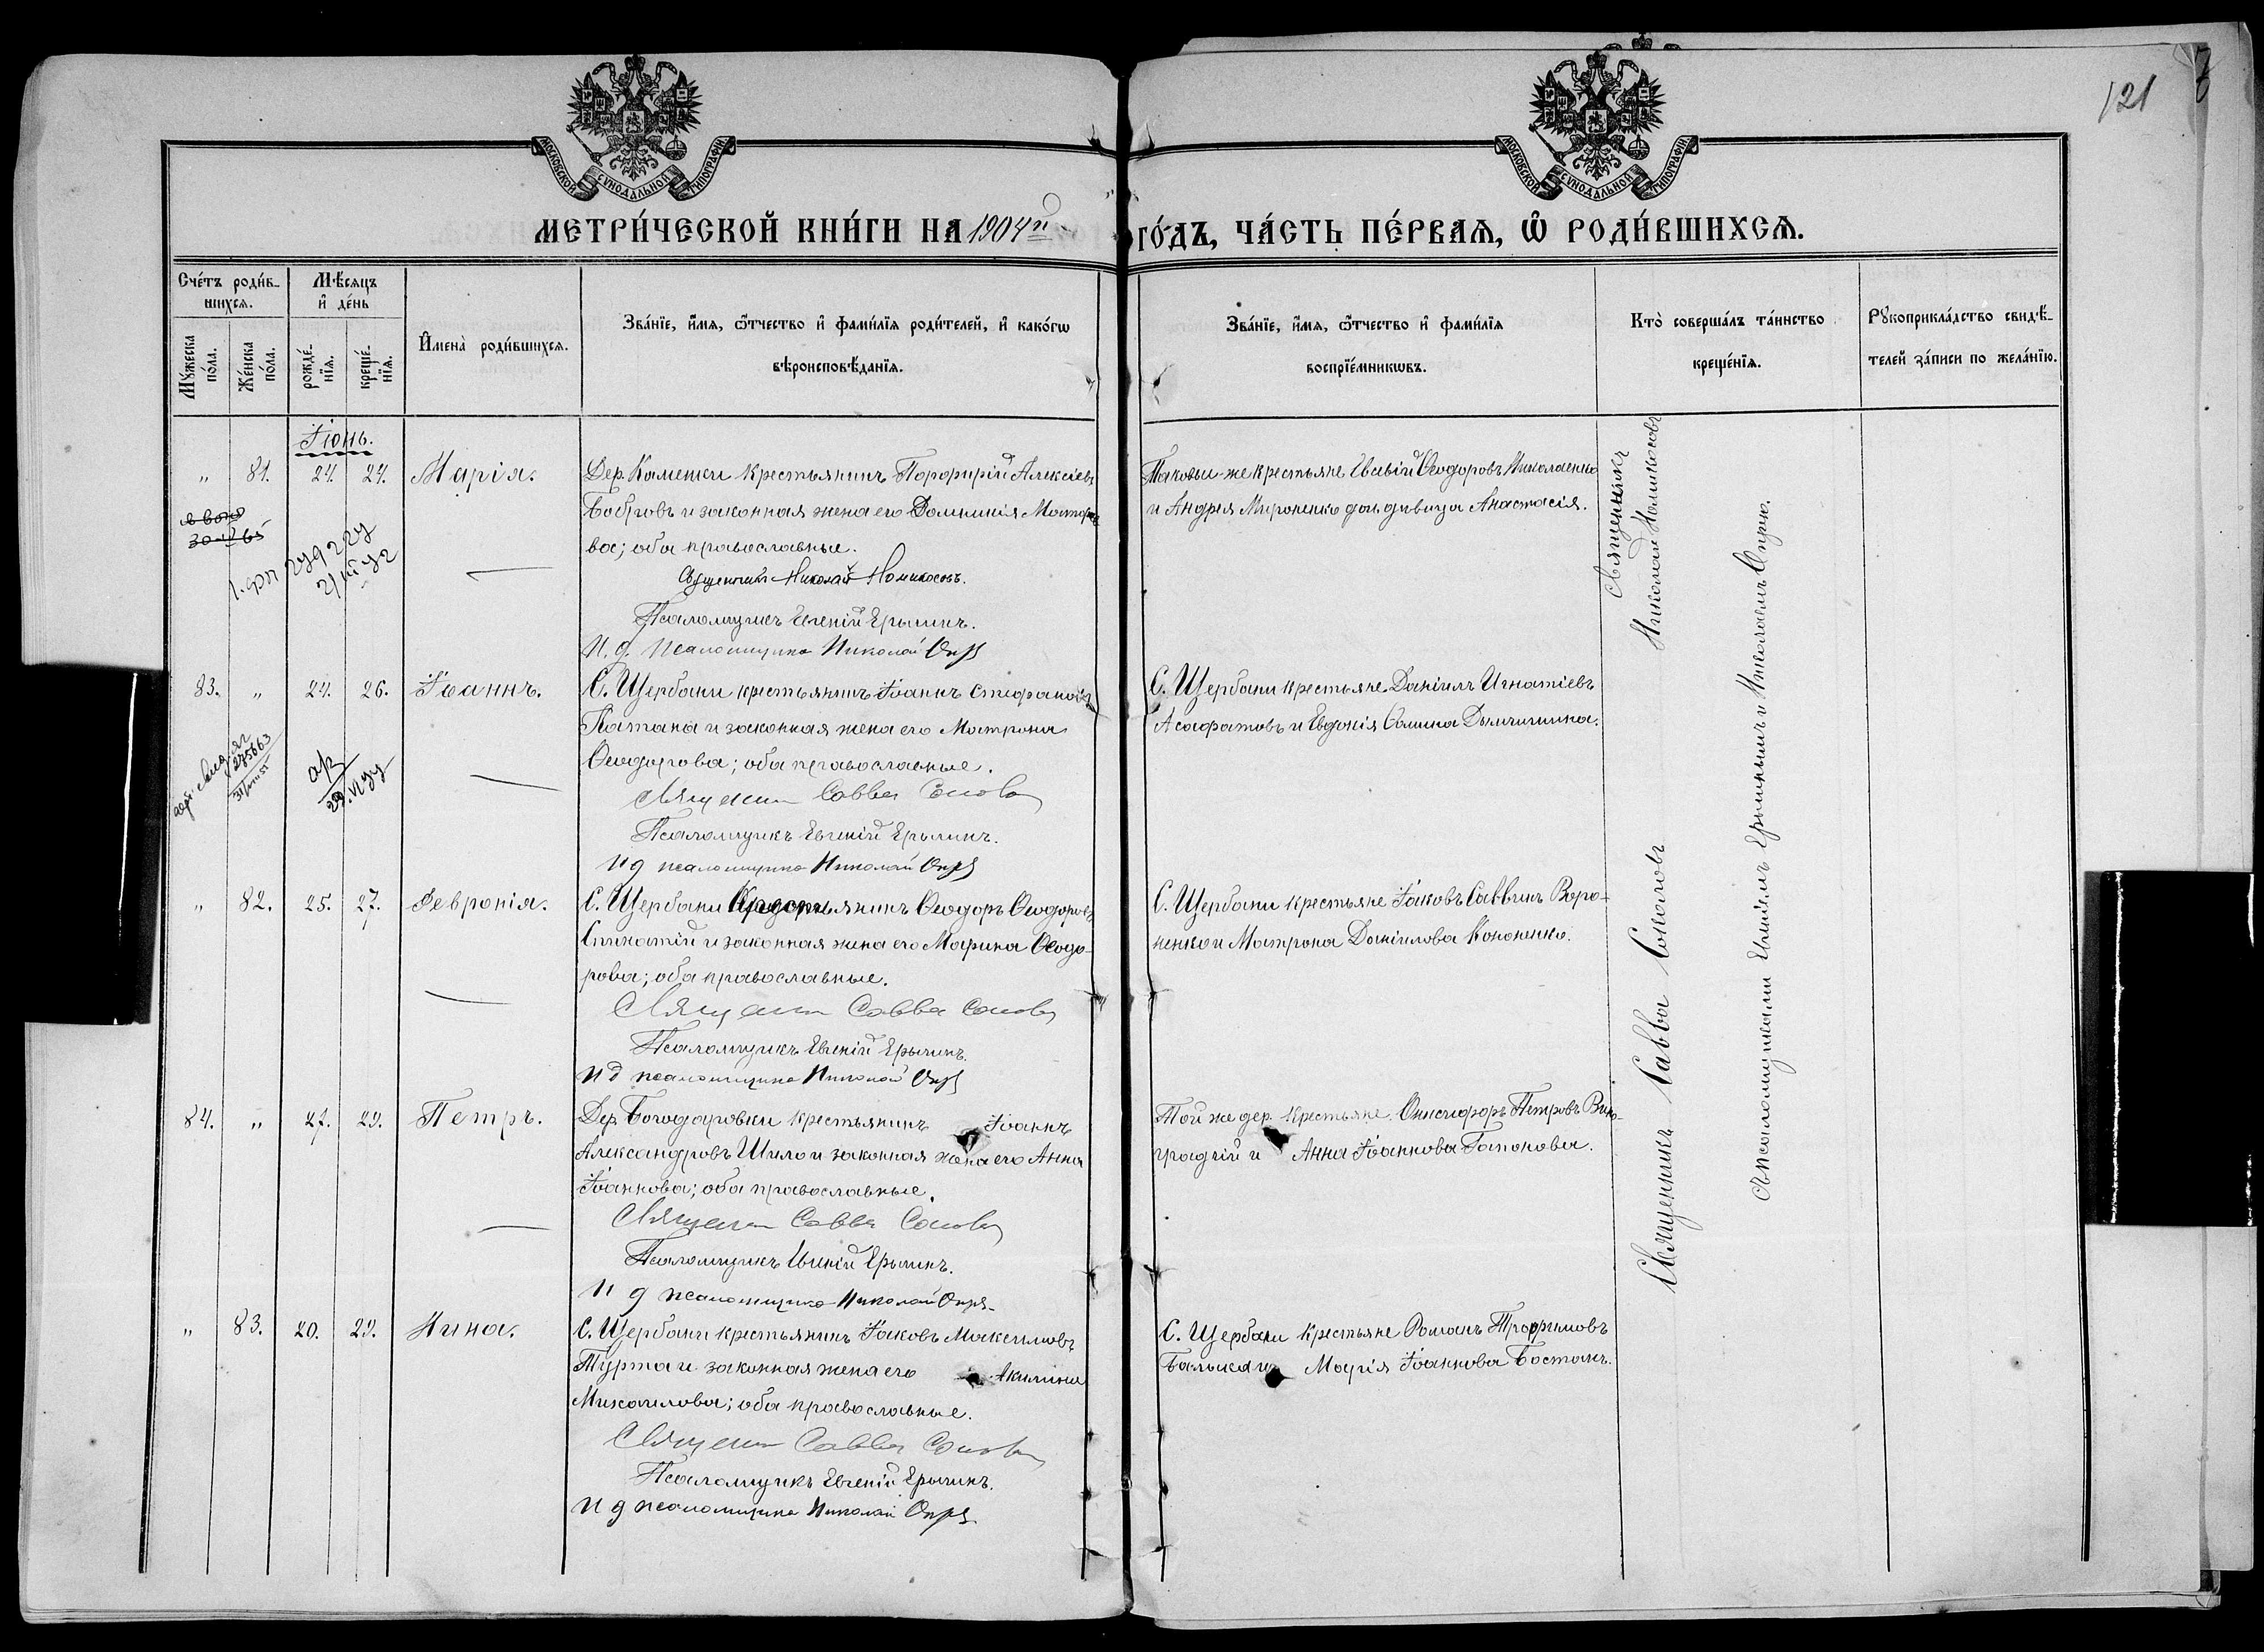 121
МОСКОВСКОЙ СУНОДАЛЬНОЙ ТИПОГРАФІИ
МОСКОВСКОЙ СУНОДАЛЬНОЙ ТИПОГРАФІИ
МЕТРИ́ЧЕСКОЙ КНИ́ГИ НА 1904й ГО́ДЪ, ЧА́СТЬ ПЕ́РВАЯ, Ѡ҆ РОДИ́ВШИХСЯ.
Сче́тъ роди́в-
шихся.
Мѣ́сяцъ
и҆ де́нь
Мꙋ́жеска
по́ла.
Же́нска
по́ла.
рожде́-
нїя.
креще́-
нїя.
И҆мена̀ роди́вшихся.
Зва́нїе, и҆́мя, ѻ҆́тчество и҆ фами́лїя роди́телей, и҆ како́гѡ
вѣроисповѣ́данїя.
Зва́нїе, и҆́мя, ѻ҆́тчество и҆ фами́лїя
воспрїе́мникѡвъ.
Кто̀ соверша́лъ та́инство
креще́нїя.
Рꙋкоприкла́дство свидѣ́-
телей за́писи по жела́нїю.
Іюнь.
" 81. 24. 24. Марія.
Дер. Каменки крестьянинъ Порфирій Алексіевъ
Бобровъ и законная жена его Домникія
ва; оба православные.
Священникъ Николай Номикосовъ.
Псаломщикъ Евгеній Ерыминъ.
И. д. псаломщика Николай Опря
Таковы-же крестьяне Ѳеодоровъ Николаенко
и Андрея Мироненко дочь девица Анастасія.
Священникъ
Николай Номикосовъ
83. " 24. 26. Іоаннъ.
С. Щербани крестьянинъ Іоаннъ Стефановъ
Катана и законная жена его Матрона
Ѳеодорова; оба православные.
275663
Священникъ Савва Соколов
Псаломщикъ Евгеній Ерыминъ.
И д псаломщика Николай Опря
С. Щербани крестьяне Даніилъ Игнатіевъ
Асафатовъ и Евдокія Савина
" 82. 25. 27. Февронія.
С. Щербани Крестьянинъ Ѳеодоръ Ѳеодоровъ
и законная жена его Марина Ѳеодо-
рова; оба православные.
Священник Савва Соколов
Псаломщикъ Евгеній Ерыминъ.
И д псаломщика Николай Опря
С. Щербани крестьяне Іаковъ Саввинъ Воро-
ненко и Матрона Даніилова Кононенко.
84. " 27. 29. Петръ.
Дер. Богодаровки крестьянинъ Іоаннъ
Александровъ Шило и законная жена его Анна
Іоаннова; оба православные.
Священник Савва Соколов
Псаломщикъ Евгеній Ерыминъ.
И д псаломщика Николай Опря
Той же дер. крестьяне Онисифоръ Петровъ Вино-
градчій и Анна Іоаннова Гапонова.
" 83. 29. 29. Нина.
С. Щербани крестьянинъ Іаковъ Максимовъ
Турта и законная жена его Акилина
Михаилова; оба православные.
Священник Савва Соколов
Псаломщикъ Евгеній Ерыминъ.
И д псаломщика Николай Опря
С. Щербани крестьяне Романъ Трофимовъ
Марія Іоаннова Бостанъ.
Священникъ Савва Соколовъ
съ псаломщиками Евгеніемъ Ерыминымъ и Николаемъ Опрею.